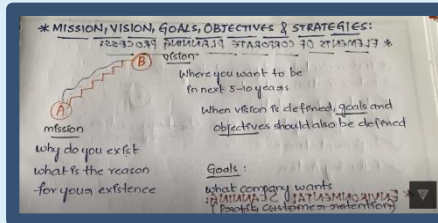 * MISSION, VISION, GOALS, OBJECTIVES & STRATEGIES:
* ELEMENTS OF CORPORATE PLANNING PROCESS:
B vision-
Where you want to be
in next 5-10 years
When vision is defined, goals and
objectives should also be defined
A
mission
why do you exist
what is the reason
for your existence
Goals :
what company wants
* ENVIRONMENTAL SCANNING:
(Profit, customer retention)